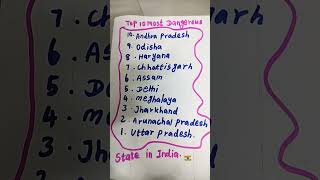 Top 10 Most Dangerous
10. Andhra Pradesh
9. Odisha
8. Haryana
7. Chhattisgarh
6. Assam
5. Delhi
4. meghalaya
3. Jharkhand
2. Arunachal pradesh
1. Uttar pradesh.
State in India.